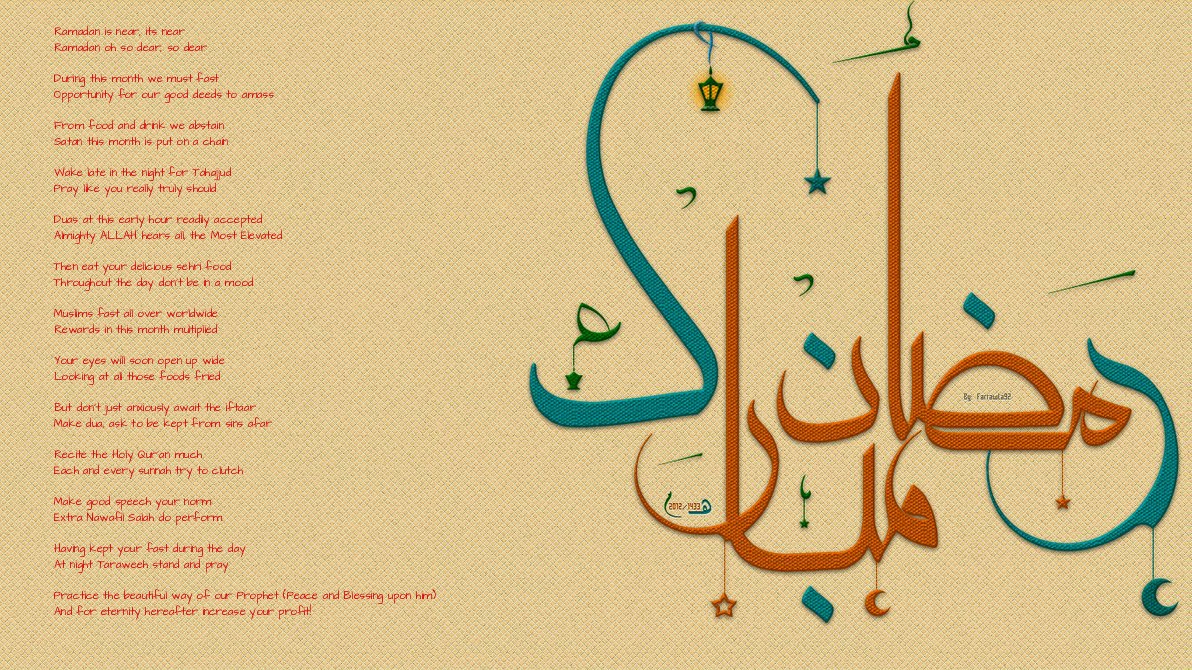 Ramadan is near, its near
Ramadan oh so dear, so dear
During this month we must fast
Opportunity for our good deeds to amass
From food and drink we abstain
Satan this month is put on a chain
Wake late in the night for Tahajjud
Pray like you really truly should
Duas at this early hour readily accepted
Almighty ALLAH hears all, the Most Elevated
Then eat your delicious sehri food
Throughout the day don't be in a mood
Muslims fast all over worldwide
Rewards in this month multiplied
Your eyes will soon open up wide
Looking at all those foods fried
But don't just anxiously await the iftaar
Make dua, ask to be kept from sins afar
Recite the Holy Qur'an much
Each and every sunnah try to clutch
Make good speech your norm
Extra Nawafil Salah do perform
Having kept your fast during the day
At night Taraweeh stand and pray
Practice the beautiful way of our Prophet (Peace and Blessing upon him)
And for eternity hereafter increase your profit!
رمضان
مبارك
By: Farrawla92
2012/1433